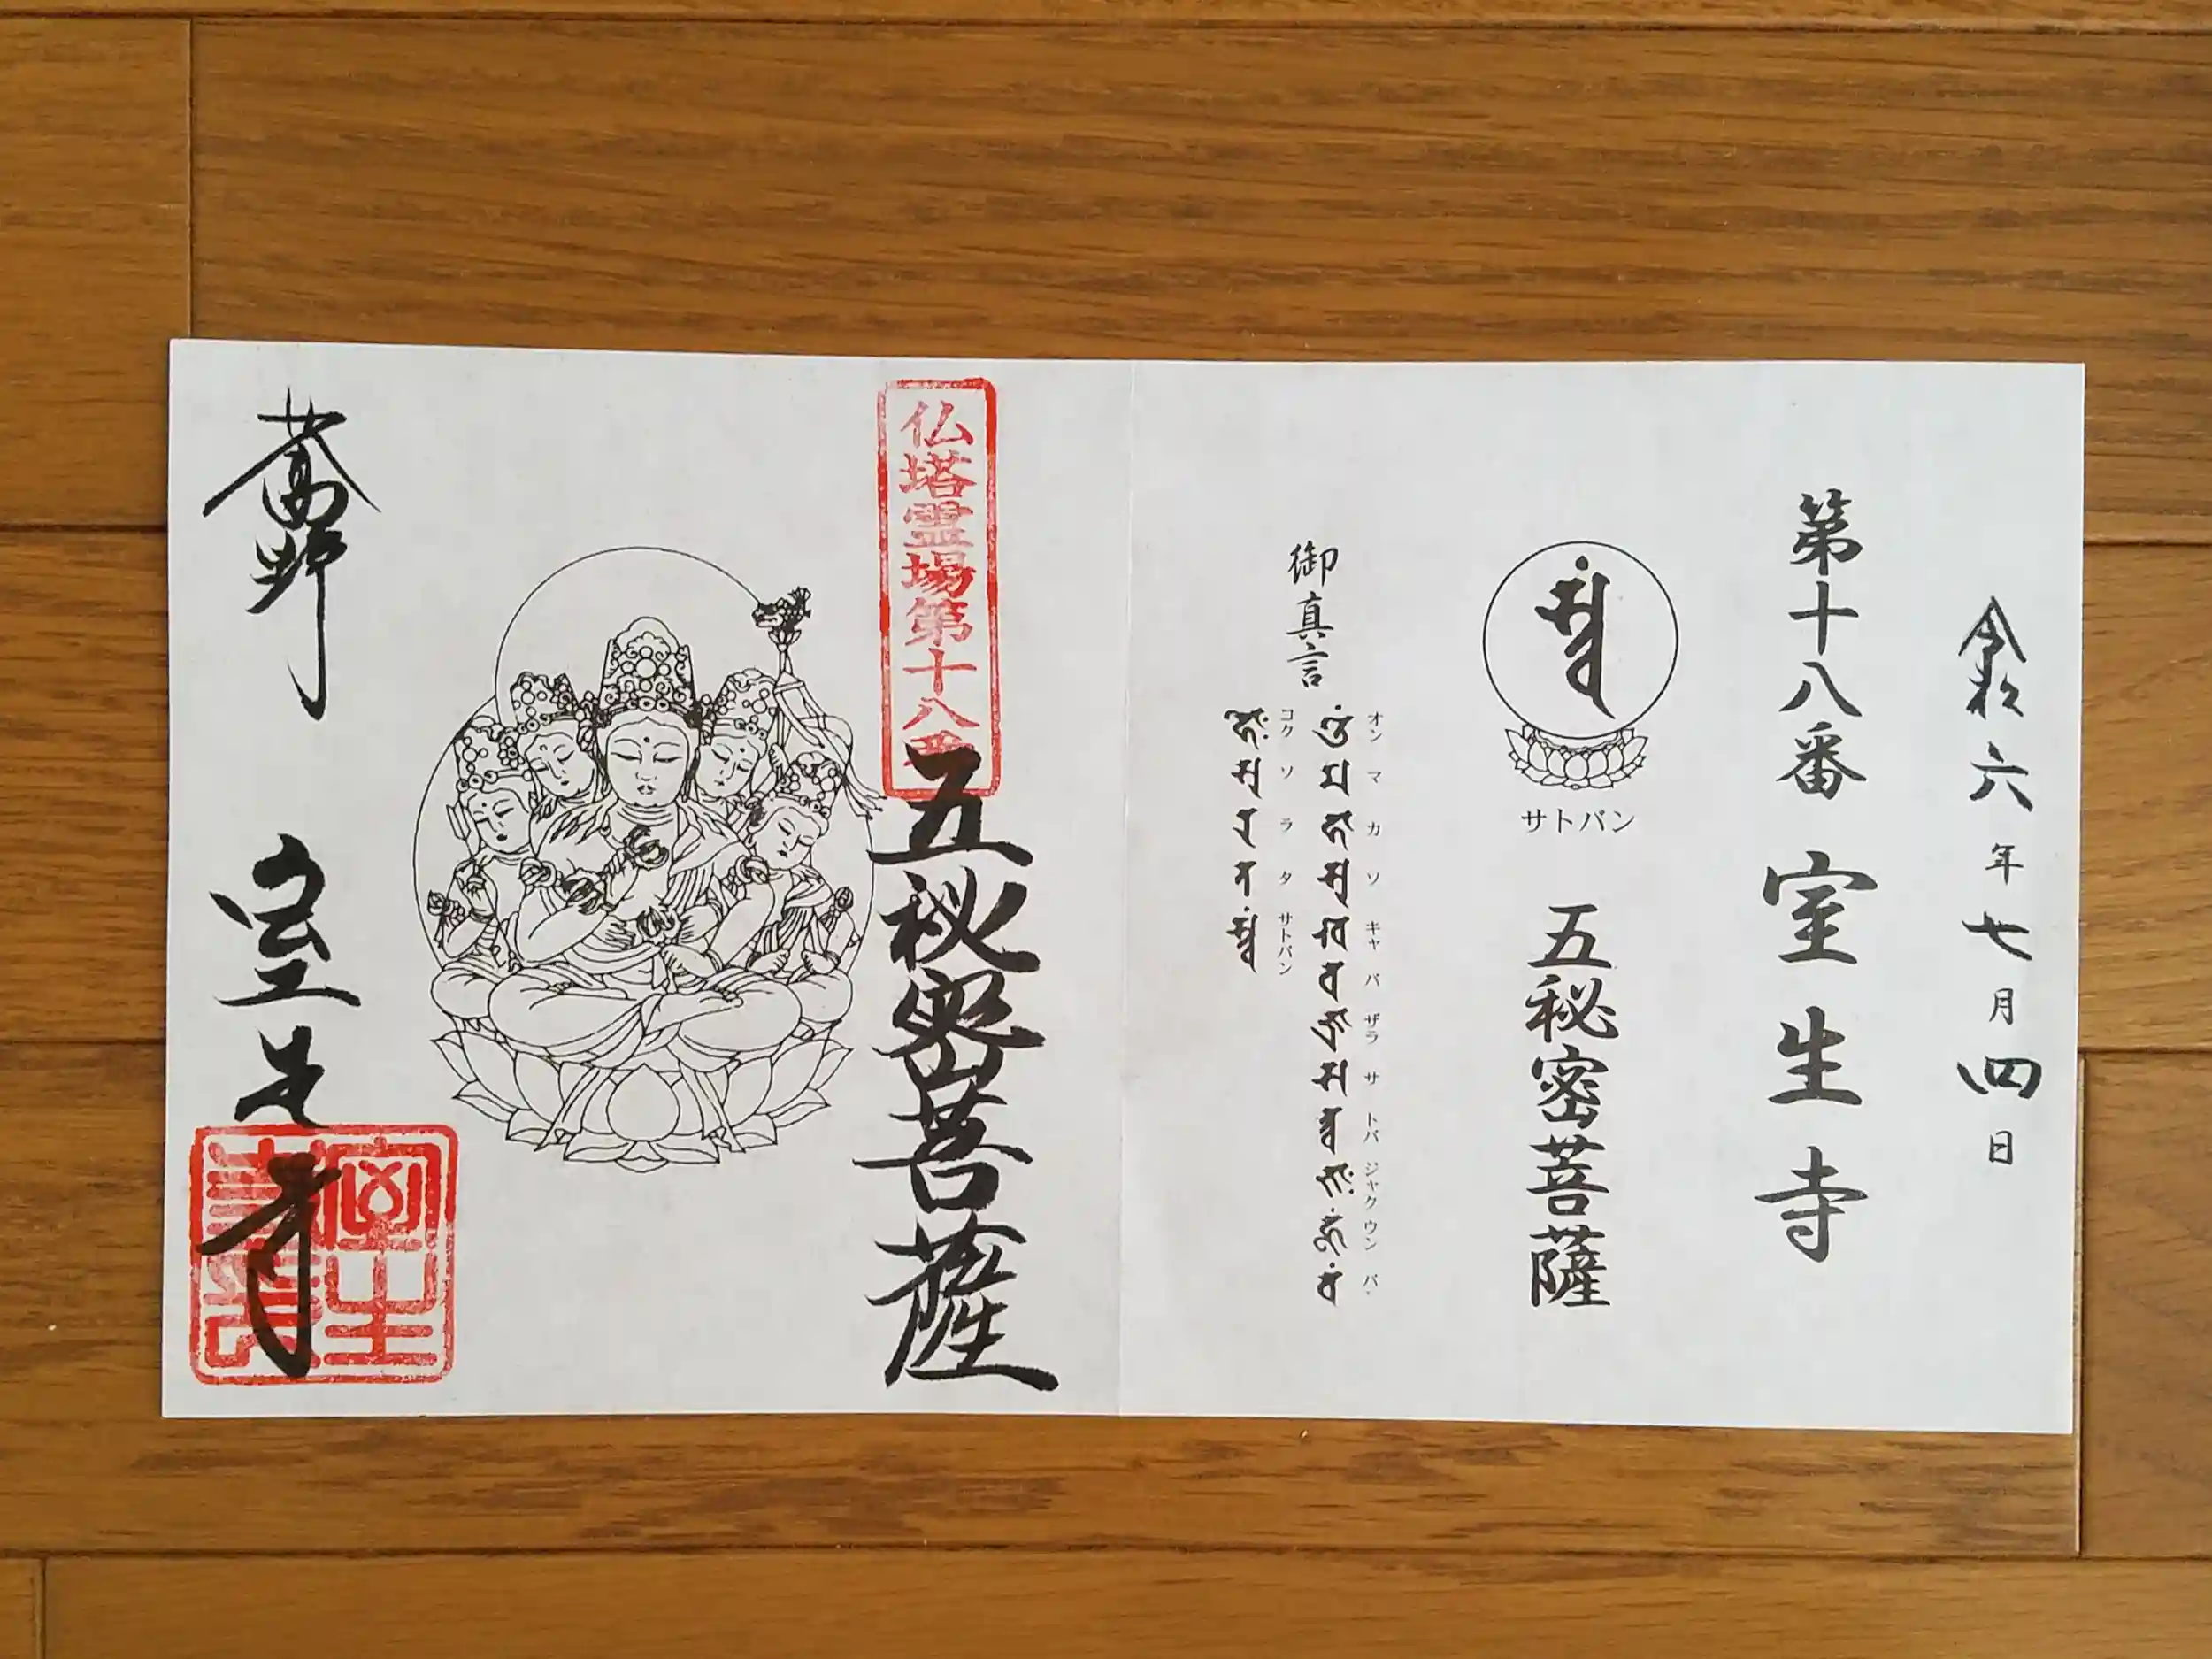 令和六年七月四日
第十八番 室生寺
サトバン
五秘密菩薩
御真言
オン マ カ ソ キャ バ ザラ サ トバ ジャク ウン バ
コク ソ ラ タ サトバン
仏塔霊場第十八番
五秘密菩薩
室生寺